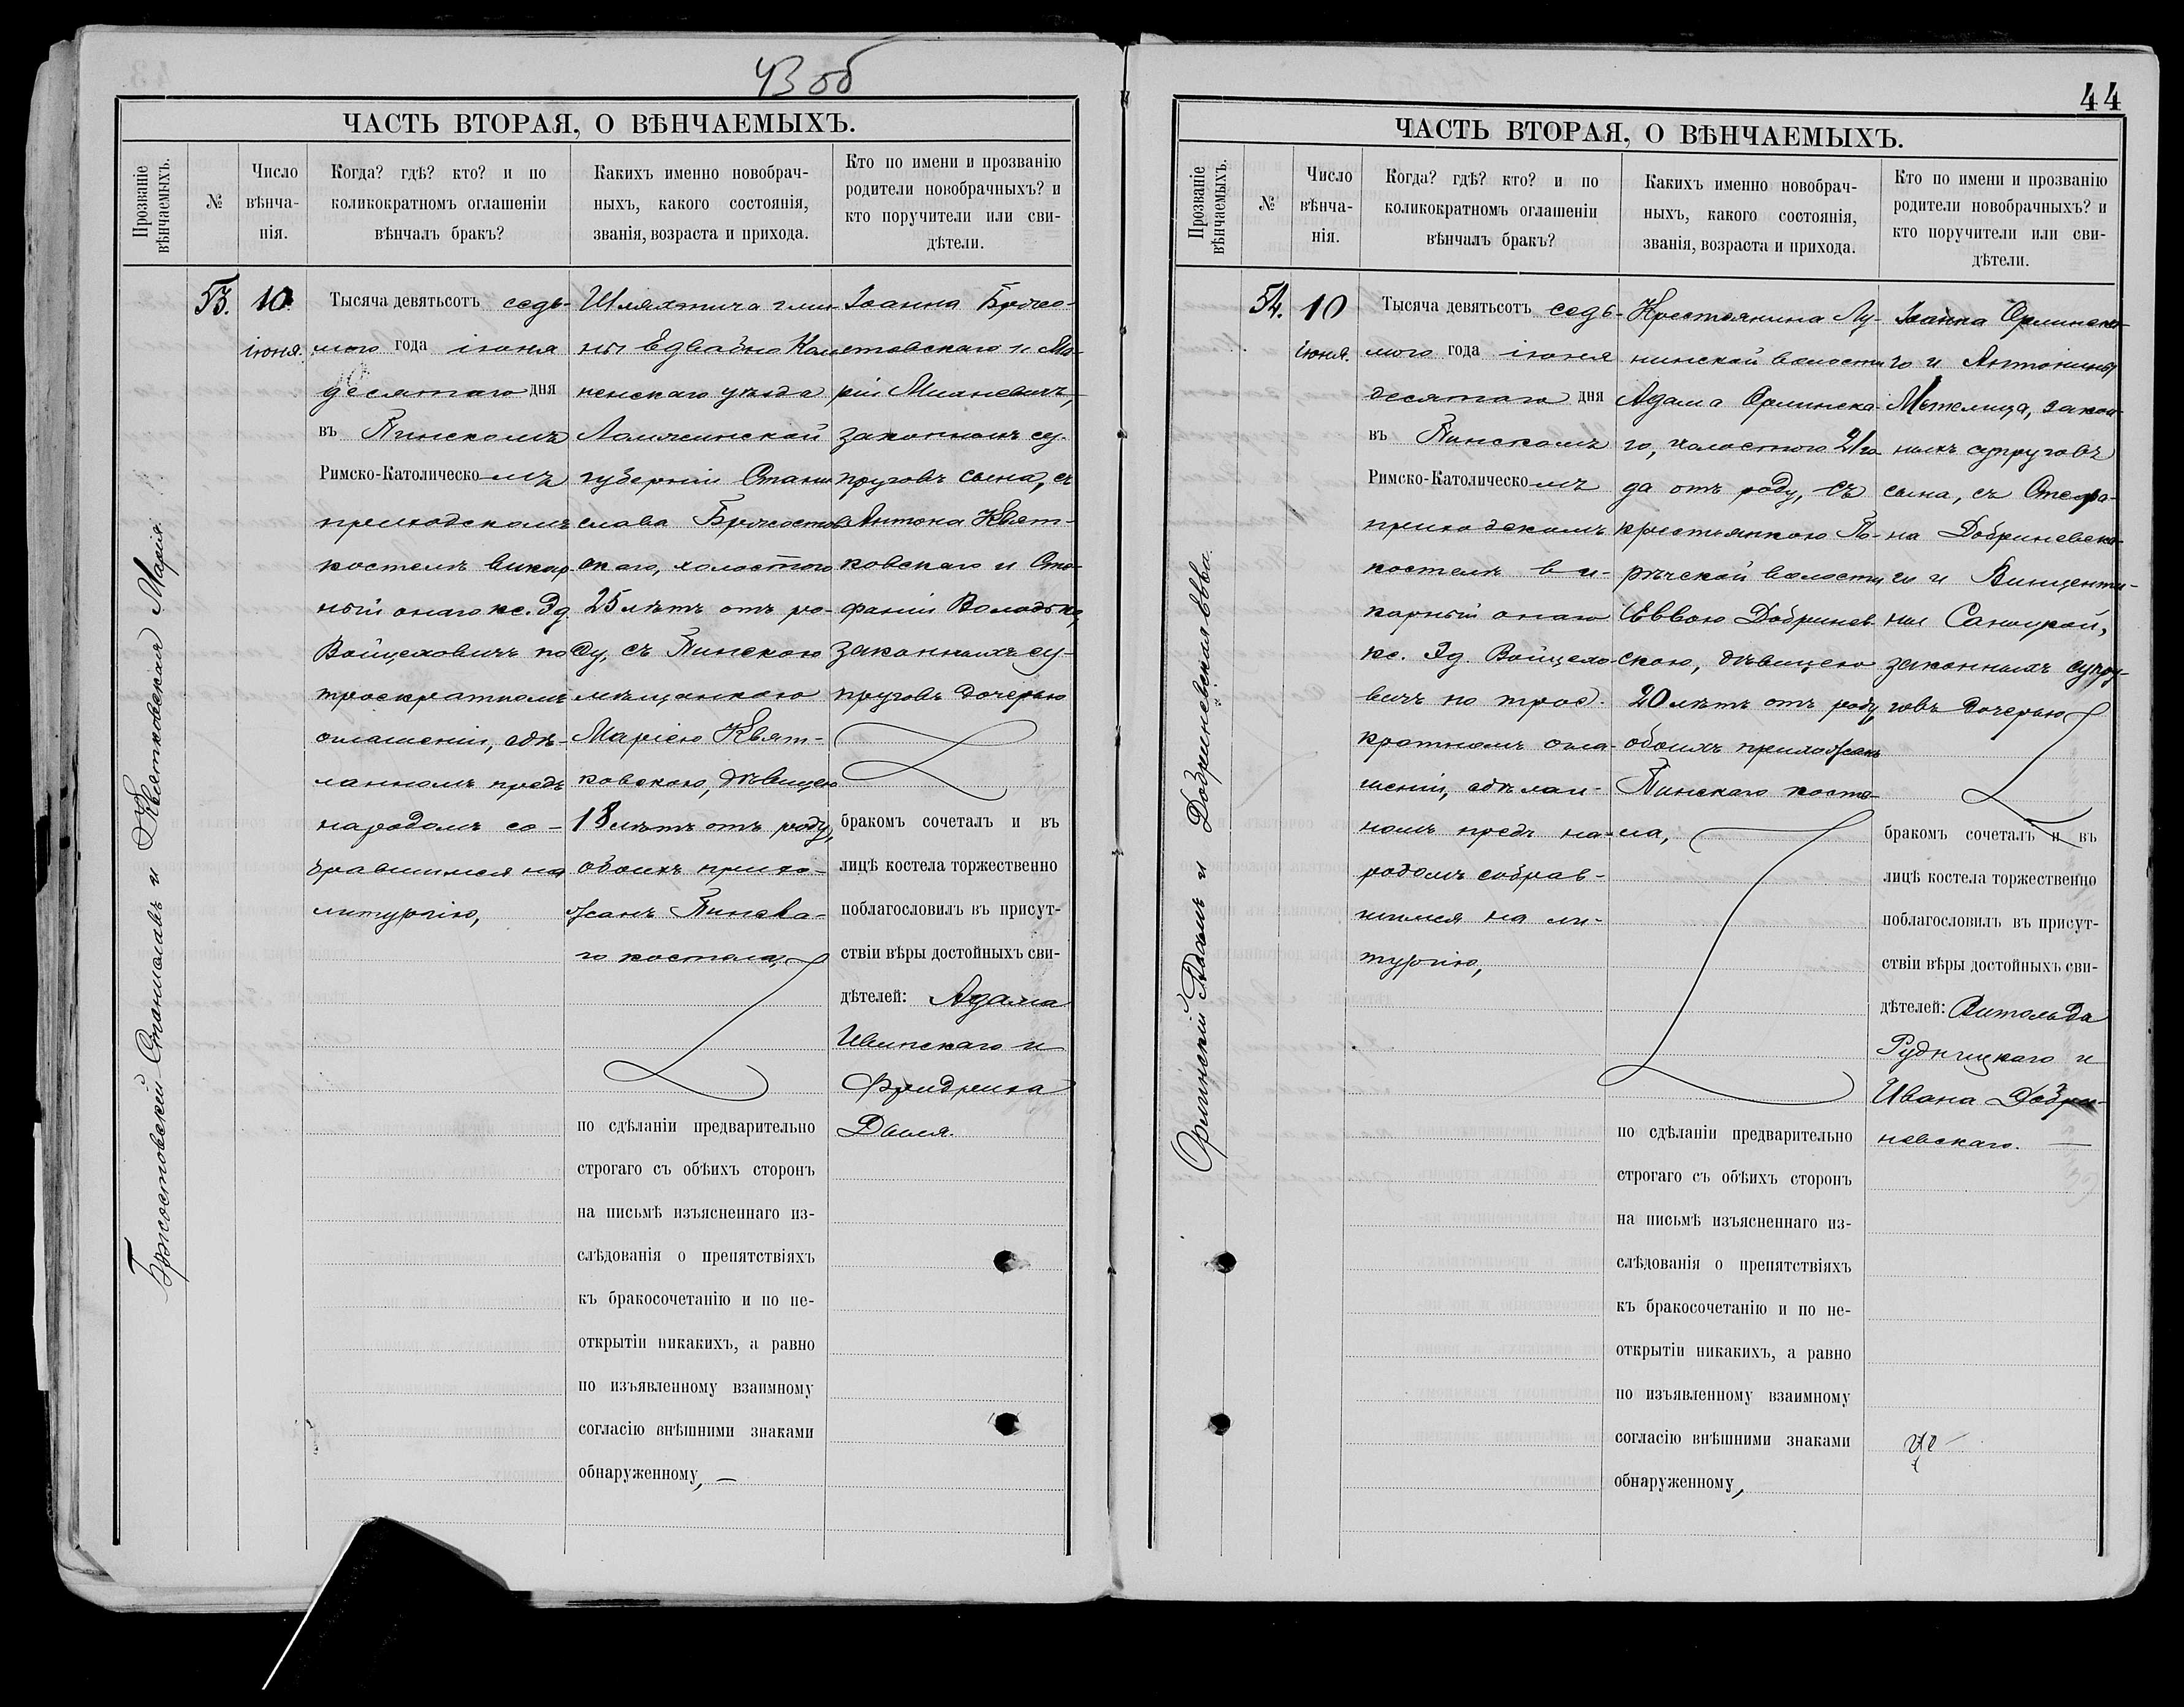 43 об
ЧАСТЬ ВТОРАЯ, О ВѢНЧАЕМЫХЪ.
Прозваніе
вѣнчаемыхъ.
№
Число
вѣнча-
нія.
Когда? гдѣ? кто? и по
коликократномъ оглашеніи
вѣнчалъ бракъ?
Какихъ именно новобрач-
ныхъ, какого состоянія,
званія, возраста и прихода.
Кто по имени и прозванію
родители новобрачныхъ? и
кто поручители или сви-
дѣтели.
Бржостовскій Станиславъ и Квятковская Марія.
53.
10
іюня.
Тысяча девятьсотъ седь-
мого года іюня
десятаго дня
въ Пинскомъ
Римско-Католическомъ
приходскомъ
костелѣ викар-
ный онаго кс. Эд.
Войцеховичъ по
троекратномъ
оглашеніи, сдѣ-
ланномъ предъ
народомъ со-
бравшимся на
литургію,
Шляхтича гми-
ны Едвабно Кол-
ненскаго уѣзда
Ломжинской
губерніи Стани-
слава Бржостов-
скаго, холостого
25 лѣтъ отъ ро-
ду, съ Пинскою
мѣщанкою
Маріею Квят-
ковскою, дѣвицею
18 лѣтъ отъ роду,
обоихъ прихо-
жанъ Пинска-
го костела,
по сдѣланіи предварительно
строгаго съ обѣихъ сторонъ
на письмѣ изъясненнаго из-
слѣдованія о препятствіяхъ
къ бракосочетанію и по не-
открытіи никакихъ, а равно
по изъявленному взаимному
согласію внѣшними знаками
обнаруженному, —
Іоанна Бржо-
стовскаго и Ма-
ріи
законныхъ су-
пруговъ сына, съ
Антона Квят-
ковскаго и Сте-
фаніи Володько,
законныхъ су-
пруговъ дочерью
бракомъ сочеталъ и въ
лицѣ костела торжественно
поблагословилъ въ присут-
ствіи вѣры достойныхъ сви-
дѣтелей: Адама
Ивинскаго и
Фридриха
44
ЧАСТЬ ВТОРАЯ, О ВѢНЧАЕМЫХЪ.
Прозваніе
вѣнчаемыхъ.
№
Число
вѣнча-
нія.
Когда? гдѣ? кто? и по
коликократномъ оглашеніи
вѣнчалъ бракъ?
Какихъ именно новобрач-
ныхъ, какого состоянія,
званія, возраста и прихода.
Кто по имени и прозванію
родители новобрачныхъ? и
кто поручители или сви-
дѣтели.
Орлинскій Адамъ и Добриневская Евва.
54.
10
іюня.
Тысяча девятьсотъ седь-
мого года іюня
десятаго дня
въ Пинскомъ
Римско-Католическомъ
приходскомъ
костелѣ ви-
карный онаго
кс. Эд. Войцехо-
вичъ по трое-
кратномъ огла-
шеніи, сдѣлан-
номъ предъ на-
родомъ собрав-
шимся на ли-
тургію,
Крестьянина Лу-
нинской волости
Адама Орлинска-
го, холостого 21 го-
да отъ роду, съ
крестьянкою По-
рѣчской волости
Еввою Добринев-
скою, дѣвицею
20 лѣтъ отъ роду,
обоихъ прихожанъ
Пинскаго косте-
ла,
по сдѣланіи предварительно
строгаго съ обѣихъ сторонъ
на письмѣ изъясненнаго из-
слѣдованія о препятствіяхъ
къ бракосочетанію и по не-
открытіи никакихъ, а равно
по изъявленному взаимному
согласію внѣшними знаками
обнаруженному,
Іоанна Орлинска-
го и Антонины
Метелица, закон-
ныхъ супруговъ
сына, съ Стефа-
на Добриневска-
го и Винценти-
ны Саницкой,
законныхъ супру-
говъ дочерью
бракомъ сочеталъ и въ
лицѣ костела торжественно
поблагословилъ въ присут-
ствіи вѣры достойныхъ сви-
дѣтелей: Витольда
Рудницкаго и
Ивана Добри-
невскаго. —